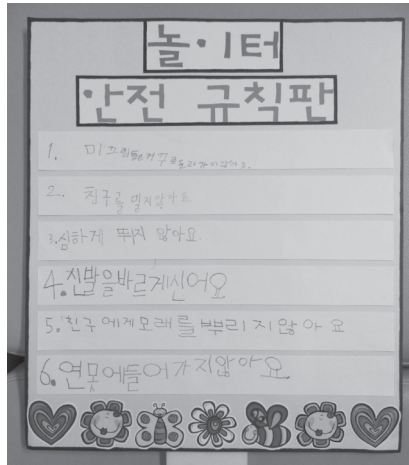 놀이터
안전 규칙판
1. 미끄럼틀 거꾸로 올라가지 않아요.
2. 친구를 밀지않아요
3. 심하게 뛰지 않아요.
4. 신발을바르게신어요
5. 친구에게모래를뿌리지않아요
6. 연못에들어가지않아요